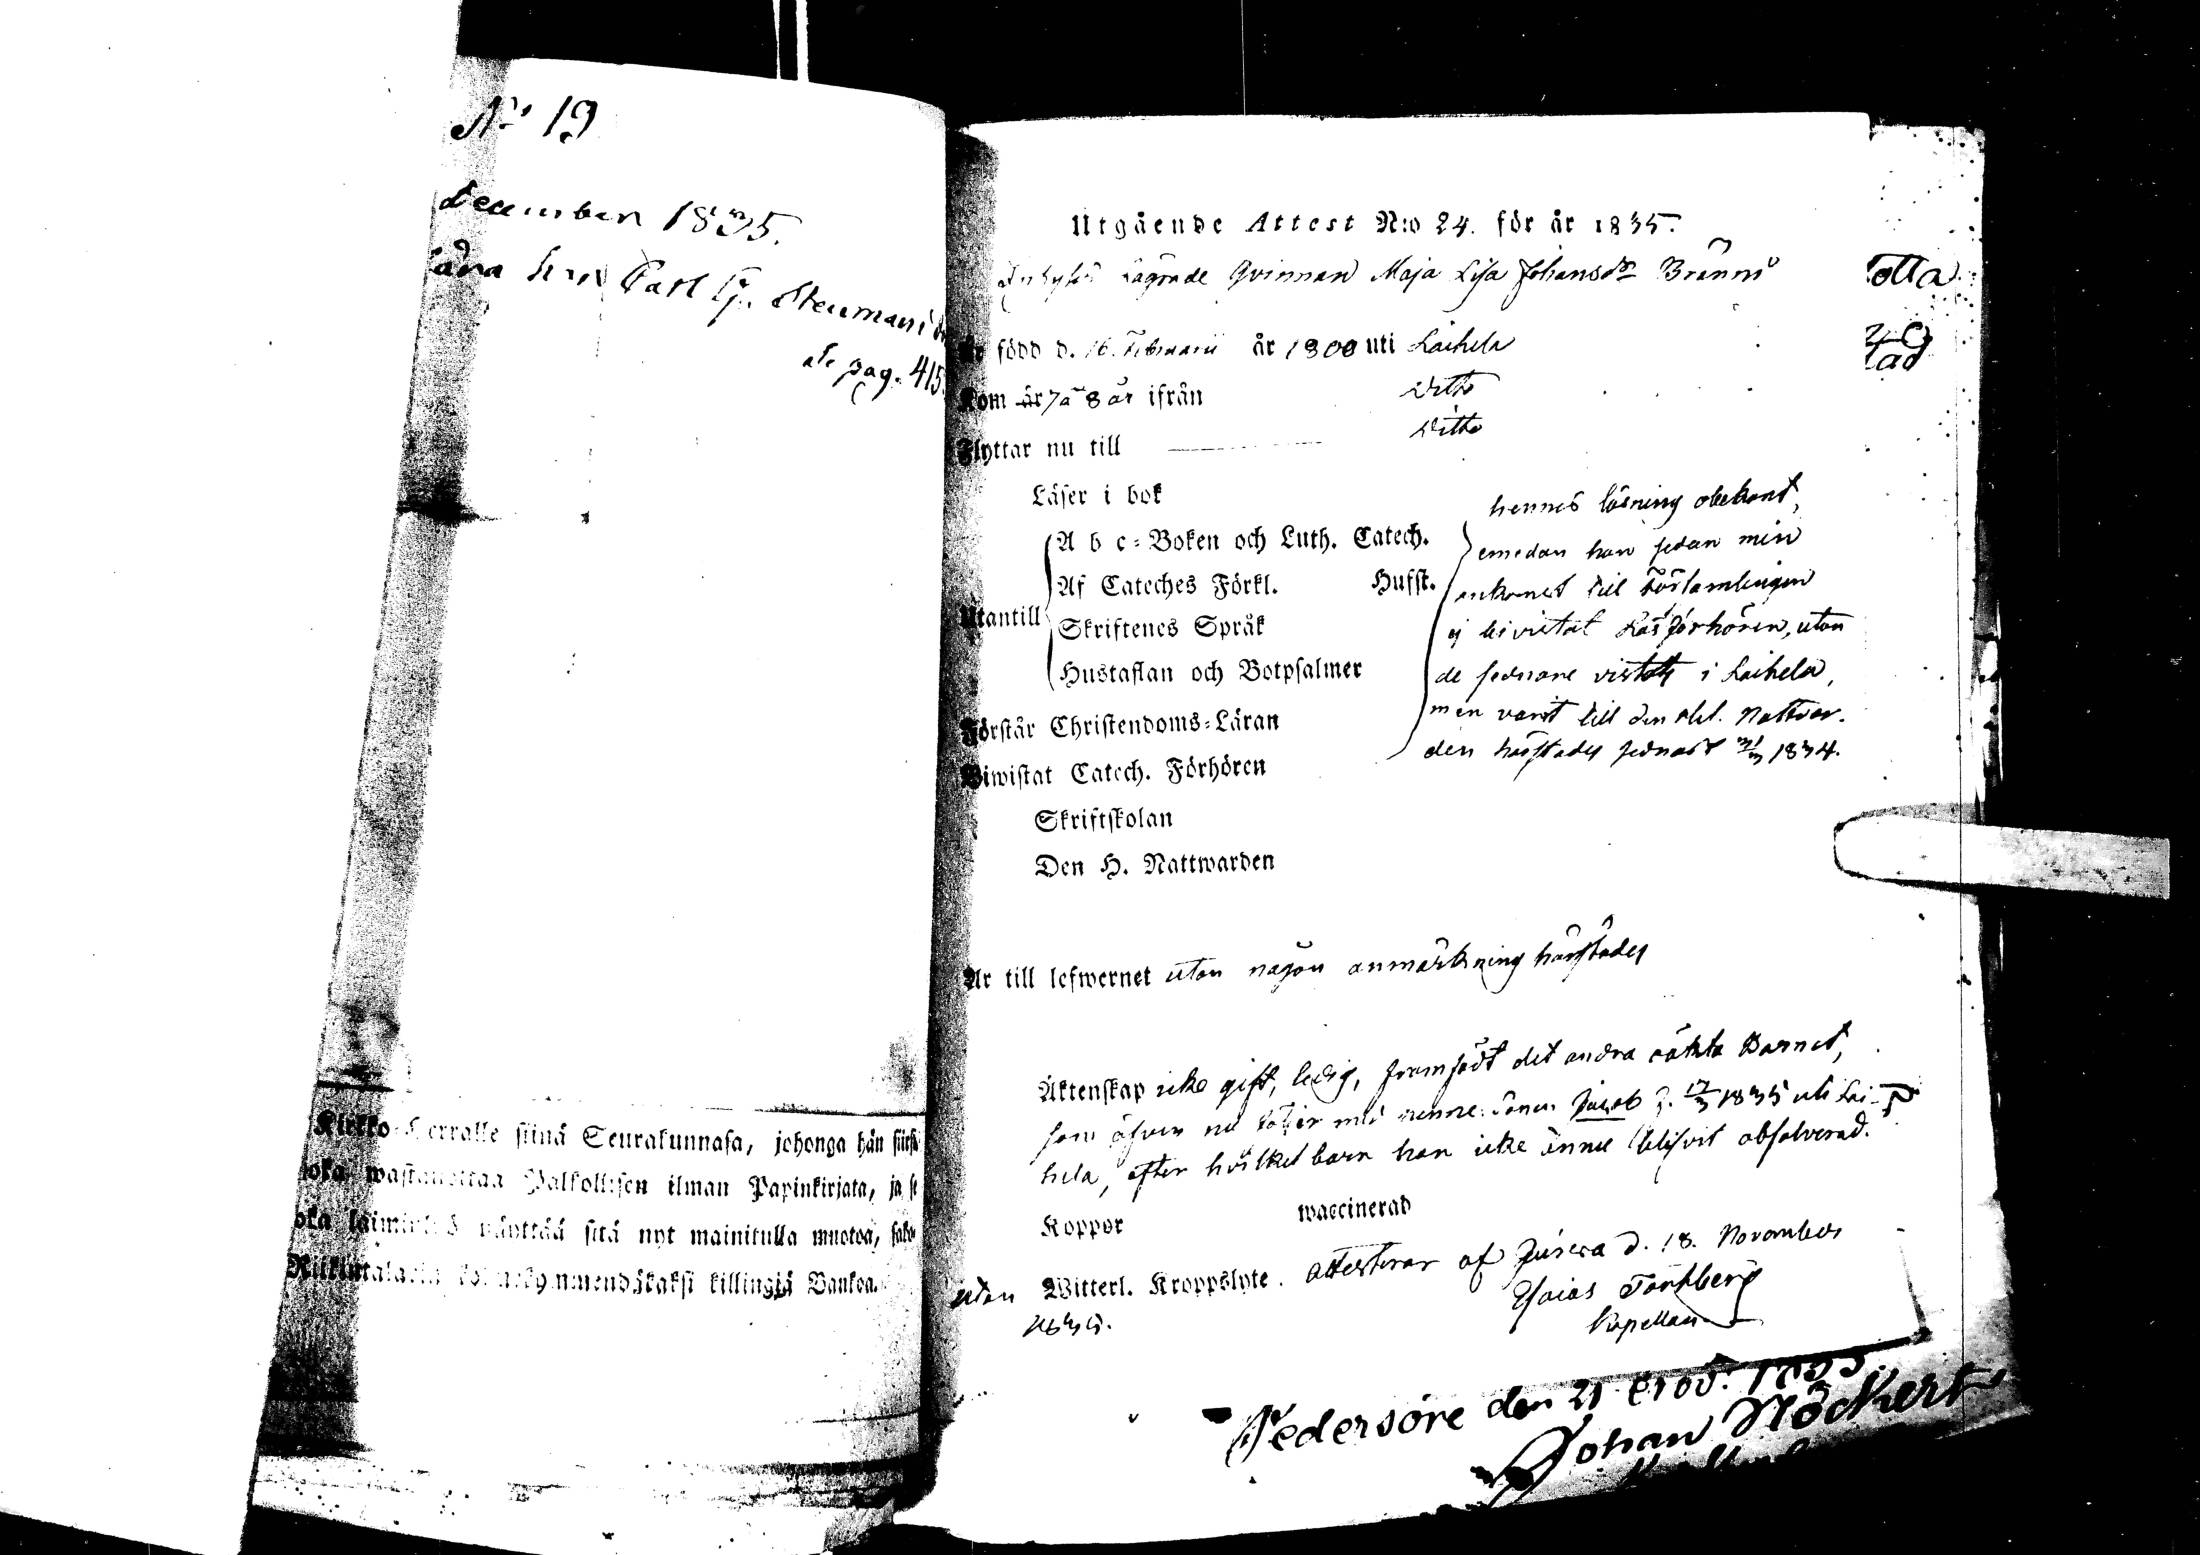 No 19
december 1835.
Carl G. Stenman
pag. 415.
Kirkko-Herralle siinä Seurakunnasa, johonga hän
wastanottaa Palkollisen ilman Papinkirjata, ja
näyttää sitä nyt mainitulla muotoa,
killingiä Bankoa.
Utgående Attest N:o 24. för år 1835.
Qvinnan Maja Lisa Johansdr Bränn
Är född d. 16. Februarii år 1800 uti Laihela
Kom år 7 à 8 år ifrån Ditto
Flyttar nu till Ditto
Läser i bok
Utantill
A b c-Boken och Luth. Catech.
Af Cateches Förkl. Husft.
Skriftenes Språk
Hustaflan och Botpsalmer
Förstår Christendoms-Läran
Biwistat Catech. Förhören
Skriftskolan
Den H. Nattwarden
hennes läsning obekant,
emedan hon sedan min
ankomst till Församlingen
ej bivistat Läsförhören, utan
de sednare vistats i Laihela,
men varit till den Hel. Nattvar-
den härstädes sednast 31/3 1834.
otta
Är till lefwernet utan någon anmärkning härstädes
Äktenskap icke gift, ledig, framfödt det andra oäkta Barnet,
som äfven nu följer med henne: Sonen Jacob f. 17/3 1835 uti Lai-
hela, efter hvilket barn hon icke ännu blifvit absolverad.
Koppor waccinerad
utan Witterl. Kroppslyte. attesterar af d. 18. November
1835.
Esaias Forsberg
Kapellan
Pedersöre den 21 Nov: 1835.
Johan Höckert